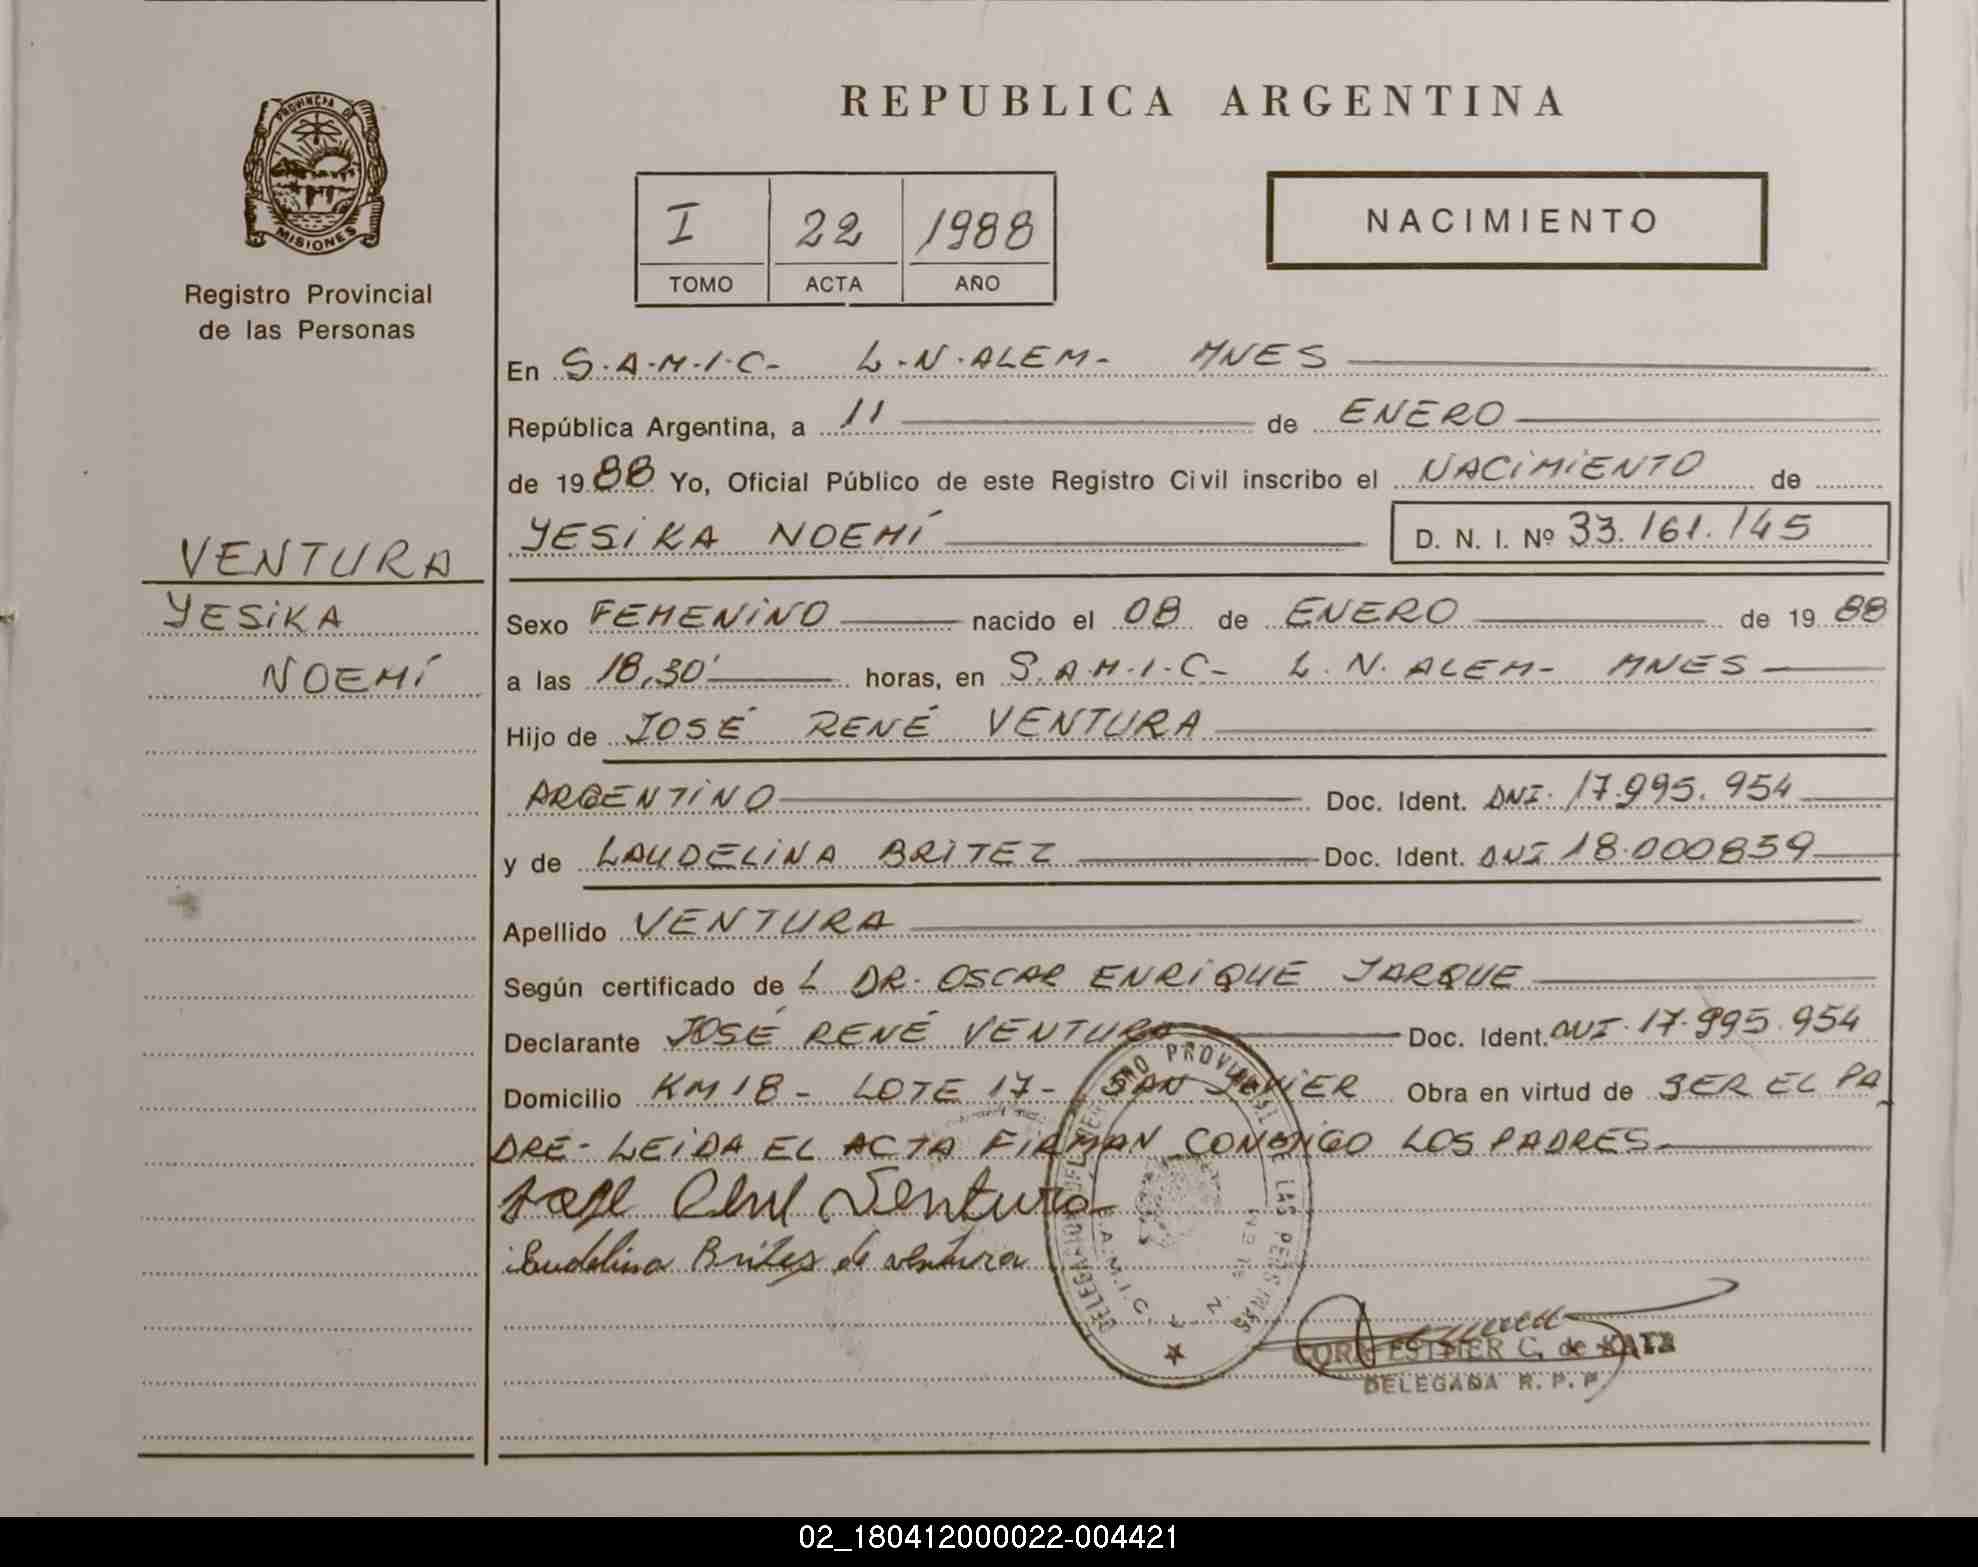 REPUBLICA ARGENTINA
PROVINCIA DE
MISIONES
Registro Provincial
de las Personas
I 22 1988
TOMO ACTA AÑO
NACIMIENTO
En S.A.M.I.C- L.N.ALEM- MNES
República Argentina, a 11 de ENERO
de 1988 Yo, Oficial Público de este Registro Civil inscribo el NACIMIENTO de
YESIKA NOEMÍ D. N. I. Nº 33.161.145
VENTURA
YESIKA
NOEMÍ
Sexo FEMENINO nacido el 08 de ENERO de 1988
a las 18,30' horas, en S.A.M.I.C- L.N. ALEM- MNES
Hijo de JOSÉ RENÉ VENTURA
ARGENTINO Doc. Ident. DNI. 17.995.954
y de LAUDELINA BRITEZ Doc. Ident. DNI 18.000859
Apellido VENTURA
Según certificado de L DR. OSCAR ENRIQUE JARQUE
Declarante JOSÉ RENÉ VENTURA Doc. Ident. DNI. 17.995.954
Domicilio KM 18 - LOTE 17 - SAN JAVIER Obra en virtud de SER EL PA
DRE- LEIDA EL ACTA FIRMAN CONMIGO LOS PADRES
Jose Rene Ventura
Laudelina Brites de ventura
DELEGACION DEL REGISTRO PROVINCIAL DE LAS PERSONAS
S.A.M.I.C. L. N.
ESTHER C. de
DELEGADA R. P. P.
02_180412000022-004421